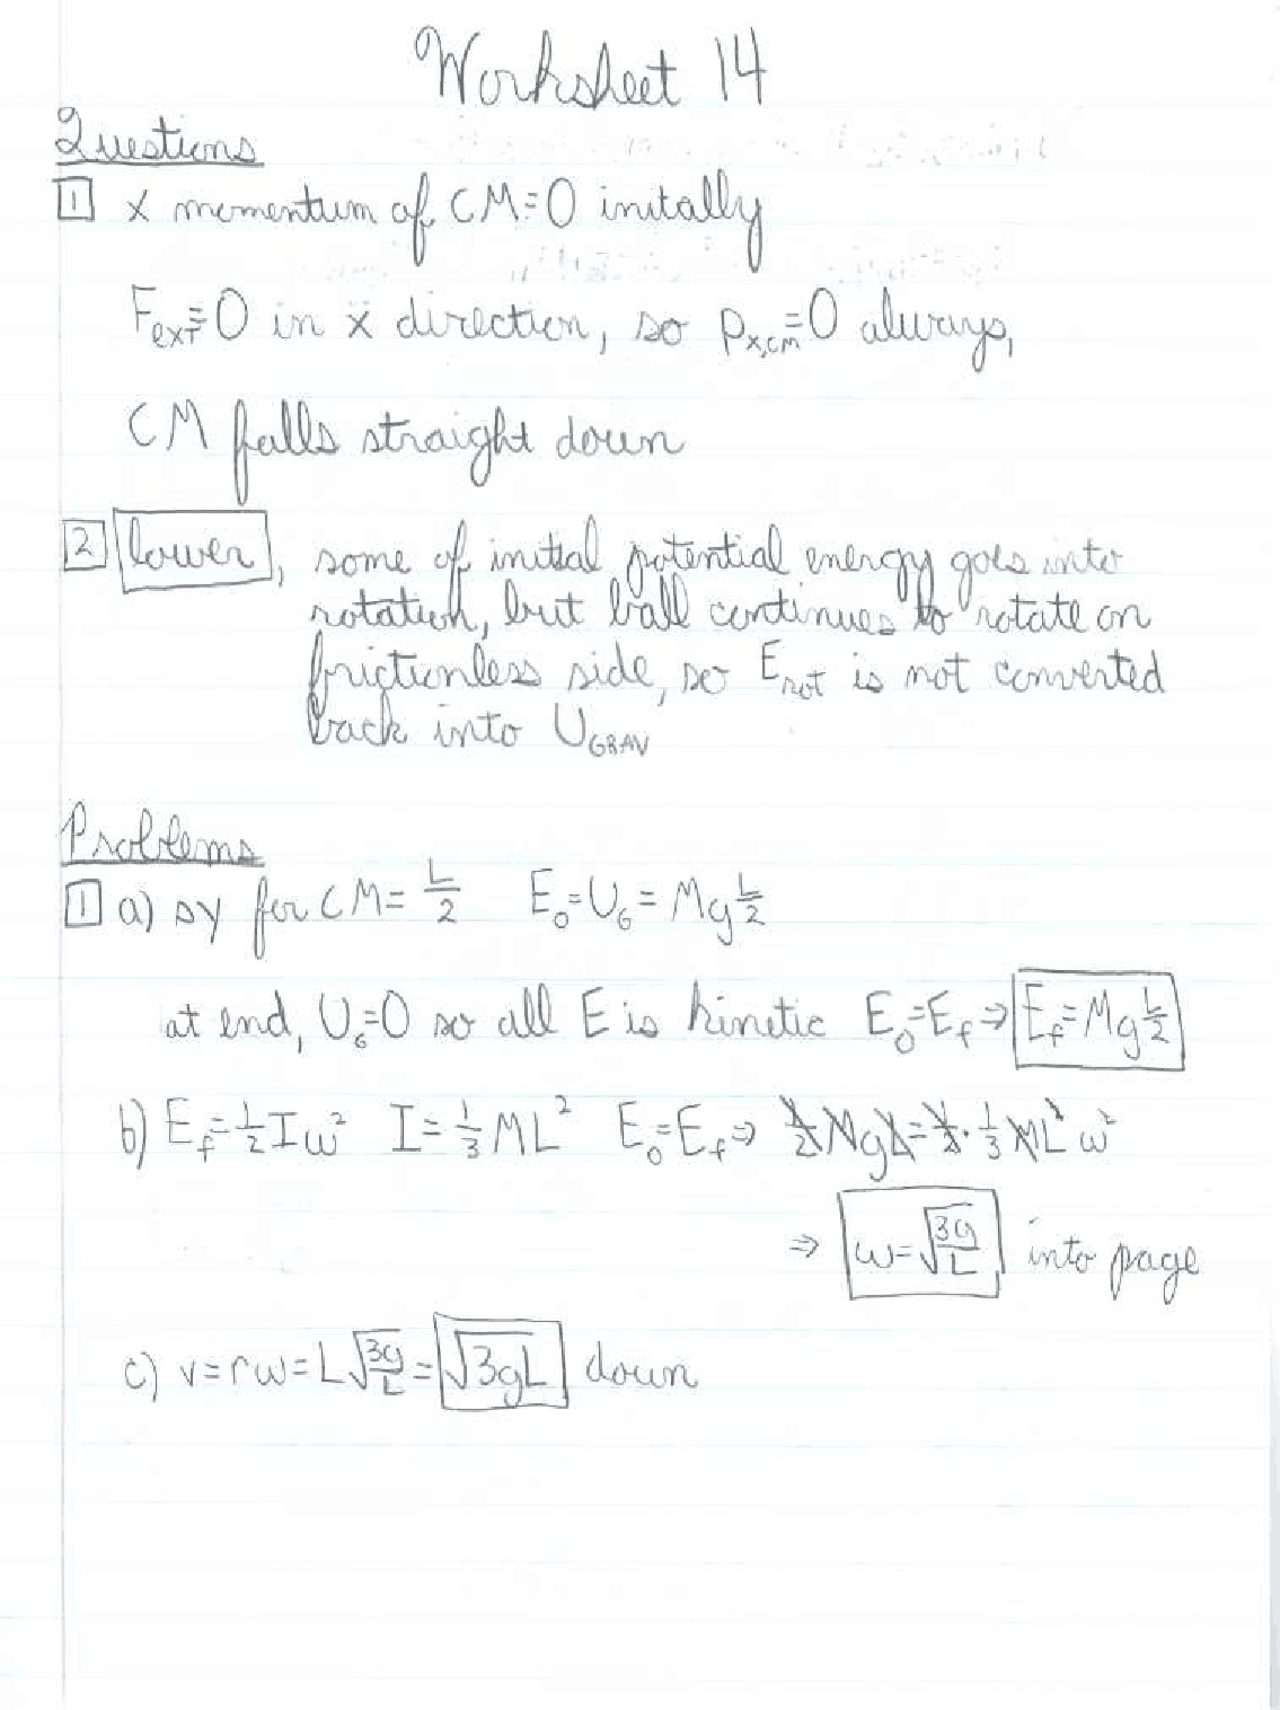 Worksheet 14
Questions
1 x momentum of CM=0 initally
F_ext=0 in x direction, so p_x,cm=0 always,
CM falls straight down
2 lower, some of initial potential energy goes into
rotation, but ball continues to rotate on
frictionless side, so E_rot is not converted
back into U_GRAV
Problems
1 a) Δy for CM = L/2 E₀=U_G=Mg L/2
at end, U_G=0 so all E is kinetic E₀=E_f ⇒ E_f=Mg L/2
b) E_f=½Iω² I=⅓ML² E₀=E_f ⇒ ½MgL=½·⅓ML²ω²
⇒ ω=√(3g/L) into page
c) v=rω=L√(3g/L)=√(3gL) down